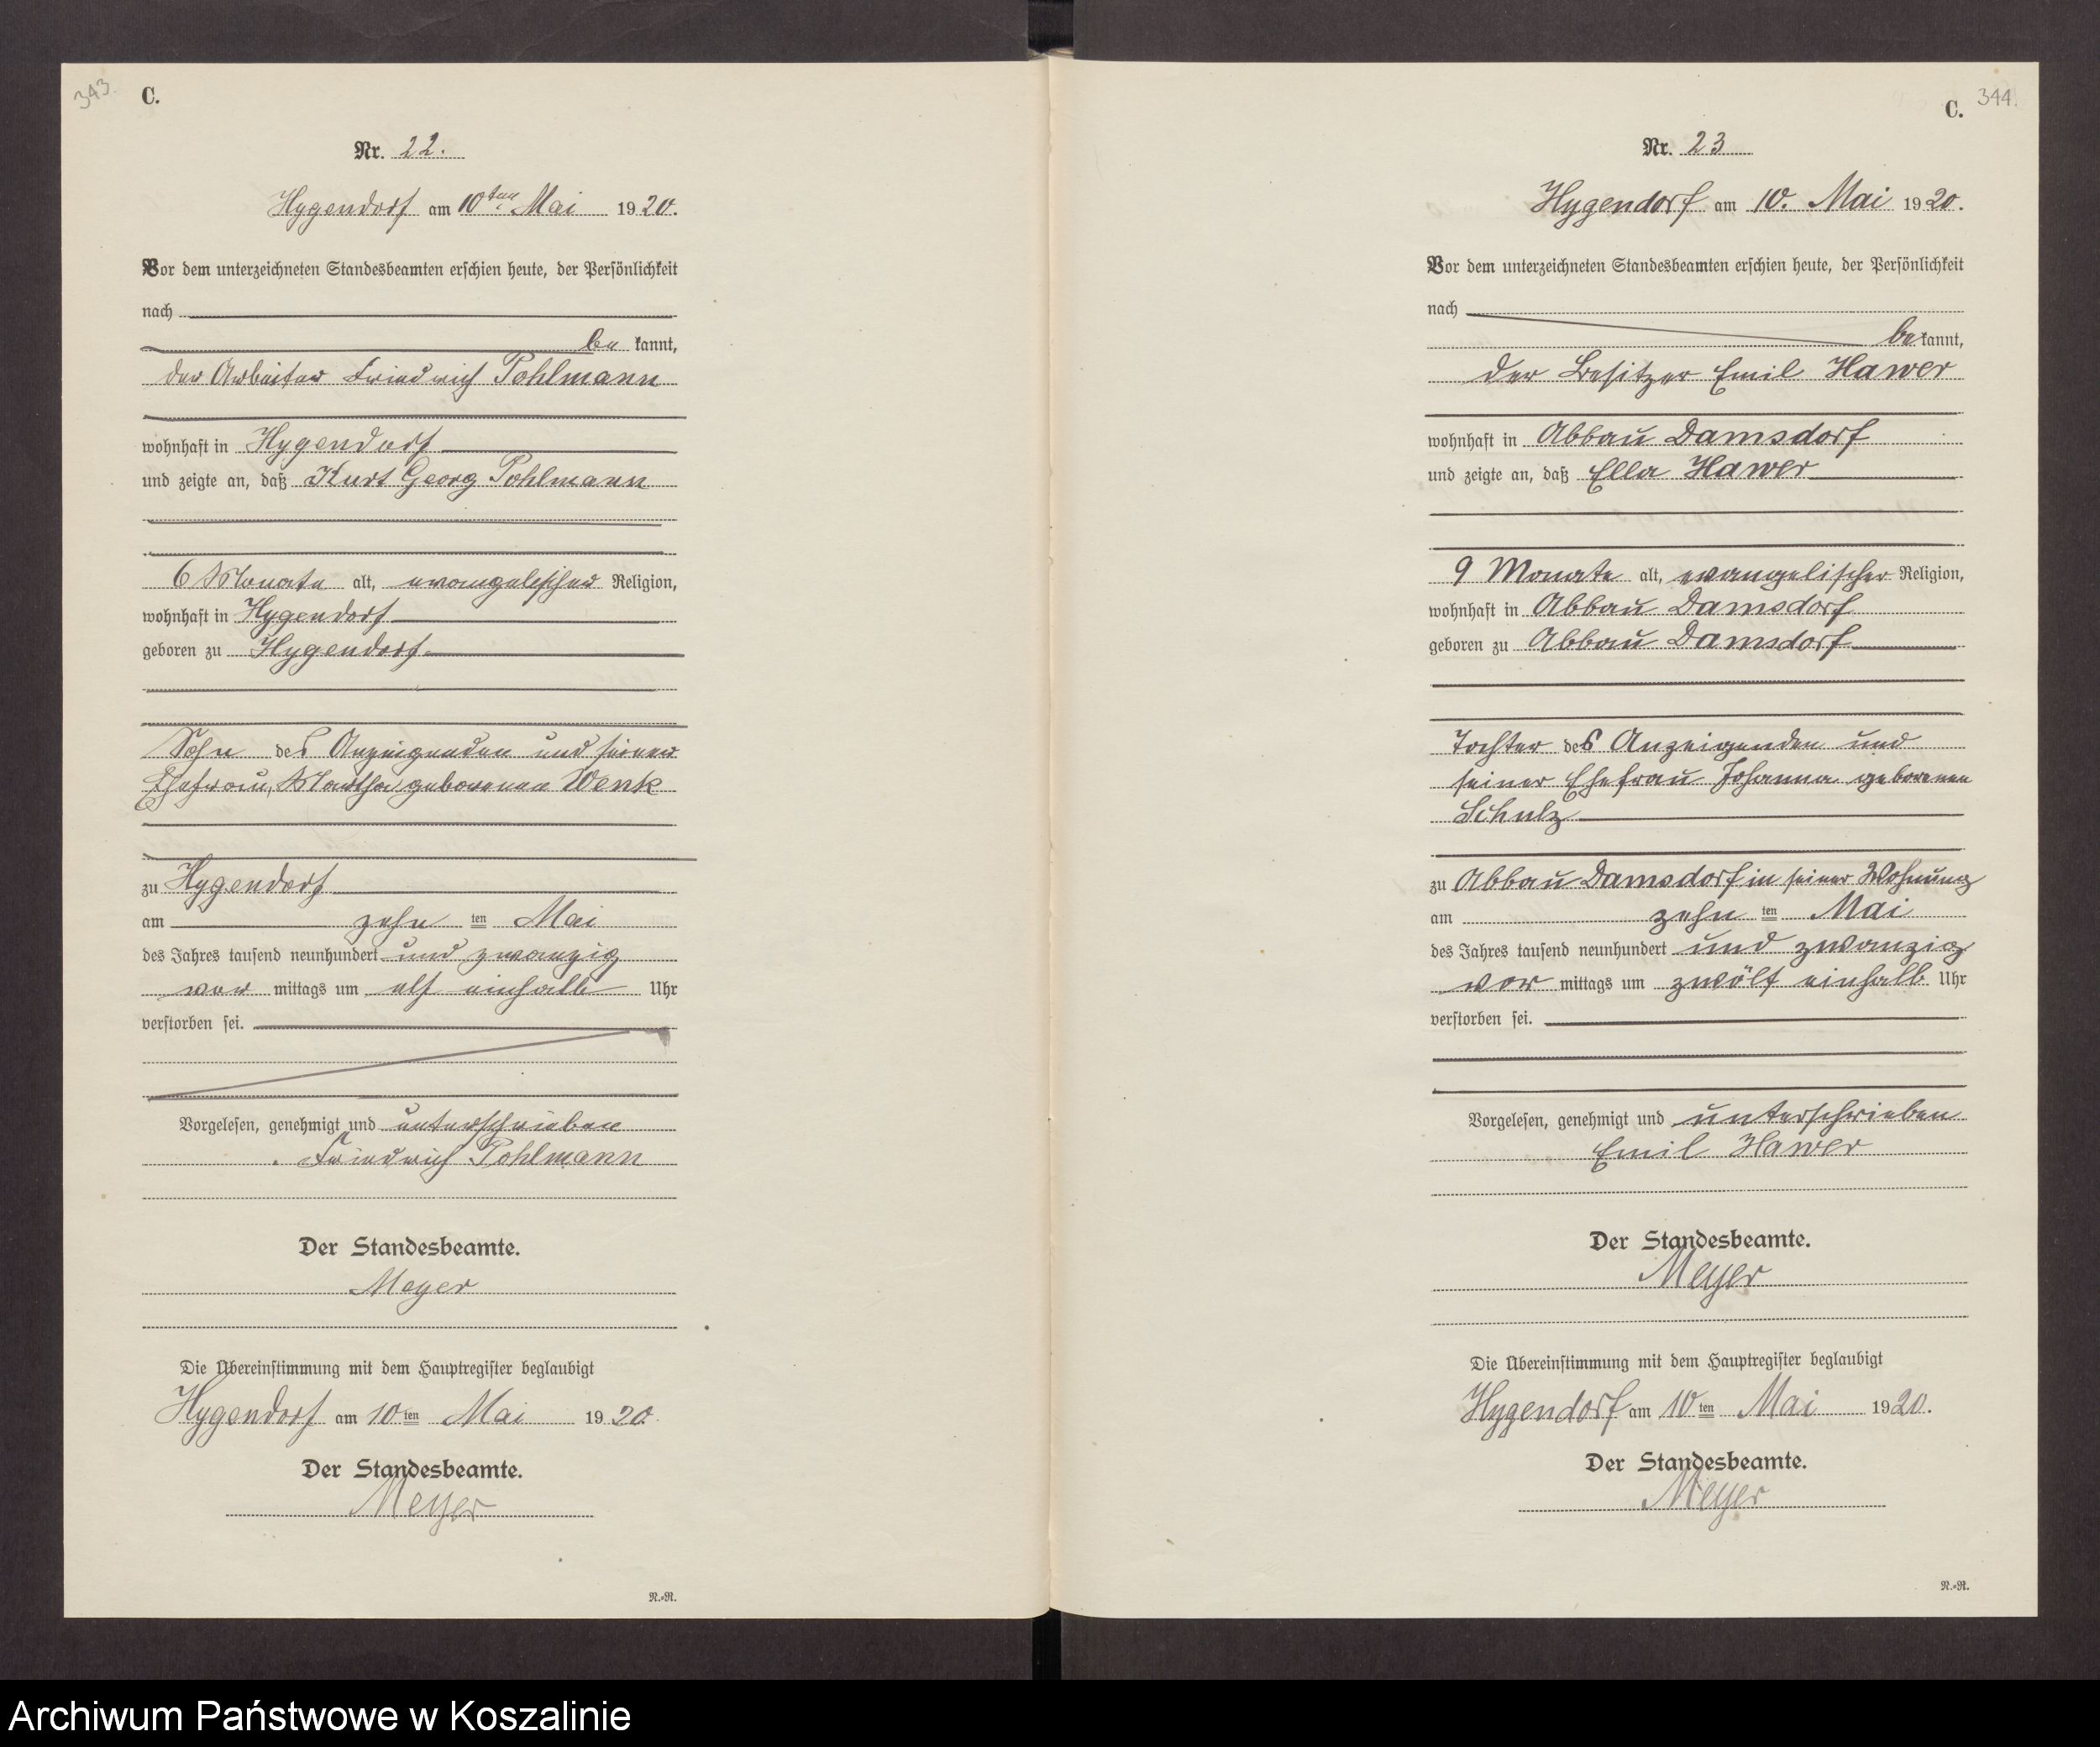 343.
C.
Nr. 22.
Hygendorf am 10ten Mai 1920.
Vor dem unterzeichneten Standesbeamten erschien heute, der Persönlichkeit
nach
be kannt,
der Arbeiter Friedrich Pohlmann
wohnhaft in Hygendorf
und zeigte an, daß Kurt Georg Pohlmann
6 Monate alt, evangelischer Religion,
wohnhaft in Hygendorf
geboren zu Hygendorf
Sohn des Anzeigenden und seiner
Ehefrau, Martha geborenen Wenk
zu Hygendorf
am zehn ten Mai
des Jahres tausend neunhundert und zwanzig
vor mittags um elf einhalb Uhr
verstorben sei.
Vorgelesen, genehmigt und unterschrieben
Friedrich Pohlmann
Der Standesbeamte.
Meyer
Die Übereinstimmung mit dem Hauptregister beglaubigt
Hygendorf am 10ten Mai 1920.
Der Standesbeamte.
Meyer
N.-R.
344.
C.
Nr. 23
Hygendorf am 10. Mai 1920.
Vor dem unterzeichneten Standesbeamten erschien heute, der Persönlichkeit
nach
be kannt,
der Besitzer Emil Hawer
wohnhaft in Abbau Damsdorf
und zeigte an, daß Ella Hawer
9 Monate alt, evangelischer Religion,
wohnhaft in Abbau Damsdorf
geboren zu Abbau Damsdorf
Tochter des Anzeigenden und
seiner Ehefrau Johanna geborenen
Schulz
zu Abbau Damsdorf in seiner Wohnung
am zehn ten Mai
des Jahres tausend neunhundert und zwanzig
vor mittags um zwölf einhalb Uhr
verstorben sei.
Vorgelesen, genehmigt und unterschrieben
Emil Hawer
Der Standesbeamte.
Meyer
Die Übereinstimmung mit dem Hauptregister beglaubigt
Hygendorf am 10ten Mai 1920.
Der Standesbeamte.
Meyer
N.-R.
Archiwum Państwowe w Koszalinie